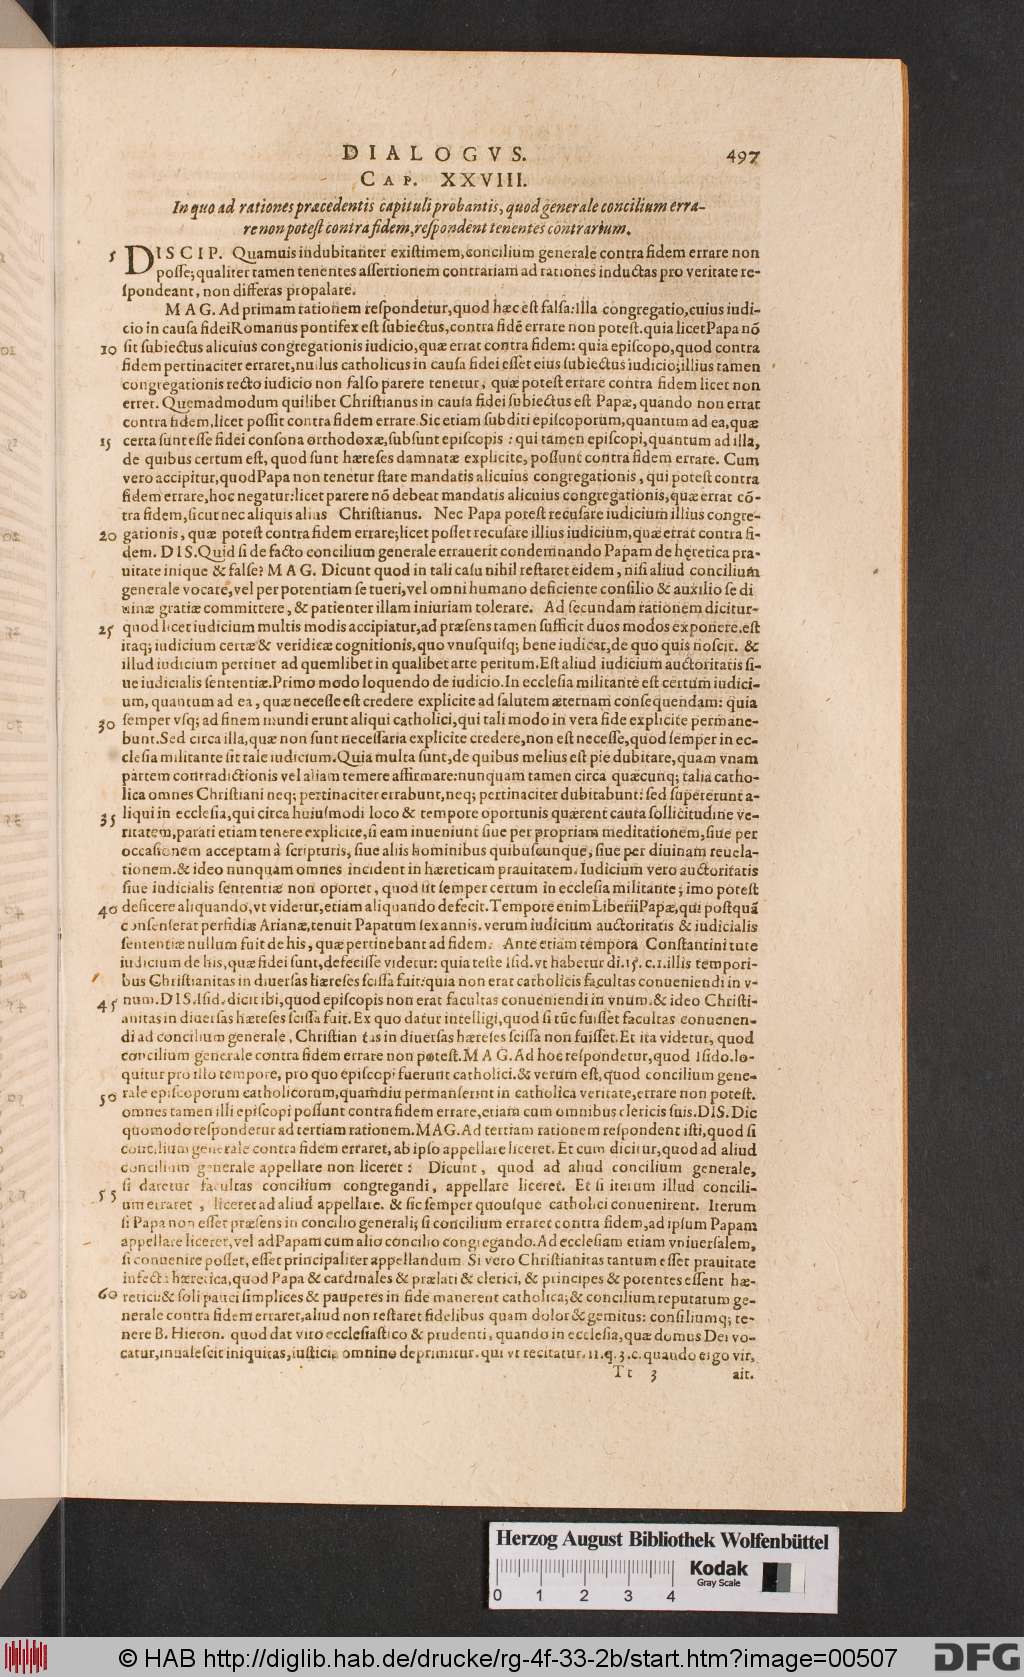 DIALOGVS. 497
CAP. XXVIII.
In quo ad rationes præcedentis capituli probantis, quod generale concilium erra-
re non potest contra fidem, respondent tenentes contrarium.
5 DISCIP. Quamuis indubitanter existimem, concilium generale contra fidem errare non
posse; qualiter tamen tenentes assertionem contrariam ad rationes inductas pro veritate re-
spondeant, non differas propalare.
MAG. Ad primam rationem respondetur, quod hæc est falsa: Illa congregatio, cuius iudi-
cio in causa fidei Romanus pontifex est subiectus, contra fidē errare non potest. quia licet Papa nō
10 sit subiectus alicuius congregationis iudicio, quæ errat contra fidem: quia episcopo, quod contra
fidem pertinaciter erraret, nullus catholicus in causa fidei esset eius subiectus iudicio; illius tamen
congregationis recto iudicio non falso parere tenetur, quæ potest errare contra fidem licet non
erret. Quemadmodum quilibet Christianus in causa fidei subiectus est Papæ, quando non errat
contra fidem, licet possit contra fidem errare. Sic etiam subditi episcoporum, quantum ad ea, quæ
15 certa sunt esse fidei consona orthodoxæ, subsunt episcopis: qui tamen episcopi, quantum ad illa,
de quibus certum est, quod sunt hæreses damnatæ explicite, possunt contra fidem errare. Cum
vero accipitur, quod Papa non tenetur stare mandatis alicuius congregationis, qui potest contra
fidem errare, hoc negatur: licet parere nō debeat mandatis alicuius congregationis, quæ errat cō-
tra fidem, sicut nec aliquis alias Christianus. Nec Papa potest recusare iudicium illius congre-
20 gationis, quæ potest contra fidem errare; licet posset recusare illius iudicium, quæ errat contra fi-
dem. DIS. Quid si de facto concilium generale errauerit condemnando Papam de hęretica pra-
uitate inique & false? MAG. Dicunt quod in tali casu nihil restaret eidem, nisi aliud concilium
generale vocare, vel per potentiam se tueri, vel omni humano deficiente consilio & auxilio se di
uinæ gratiæ committere, & patienter illam iniuriam tolerare. Ad secundam rationem dicitur-
25 quod licet iudicium multis modis accipiatur, ad præsens tamen sufficit duos modos exponere. est
itaq; iudicium certæ & veridicæ cognitionis, quo vnusquisq; bene iudicat, de quo quis noscit. &
illud iudicium pertinet ad quemlibet in qualibet arte peritum. Est aliud iudicium auctoritatis si-
ue iudicialis sententiæ. Primo modo loquendo de iudicio. In ecclesia militante est certum iudici-
um, quantum ad ea, quæ necesse est credere explicite ad salutem æternam consequendam: quia
30 semper vsq; ad finem mundi erunt aliqui catholici, qui tali modo in vera fide explicite permane-
bunt. Sed circa illa, quæ non sunt necessaria explicite credere, non est necesse, quod semper in ec-
clesia militante sit tale iudicium. Quia multa sunt, de quibus melius est pie dubitare, quam vnam
partem contradictionis vel aliam temere affirmare: nunquam tamen circa quæcunq; talia catho-
lica omnes Christiani neq; pertinaciter errabunt, neq; pertinaciter dubitabunt: sed supererunt a-
35 liqui in ecclesia, qui circa huiusmodi loco & tempore oportunis quærent cauta sollicitudine ve-
ritatem, parati etiam tenere explicite, si eam inueniunt siue per propriam meditationem, siue per
occasionem acceptam à scripturis, siue aliis hominibus quibuscunque, siue per diuinam reuela-
tionem. & ideo nunquam omnes incident in hæreticam prauitatem. Iudicium vero auctoritatis
siue iudicialis sententiæ non oportet, quod sit semper certum in ecclesia militante; imo potest
40 deficere aliquando, vt videtur, etiam aliquando defecit. Tempore enim Liberii Papæ, qui postquā
consenserat perfidiæ Arianæ, tenuit Papatum sex annis. verum iudicium auctoritatis & iudicialis
sententiæ nullum fuit de his, quæ pertinebant ad fidem. Ante etiam tempora Constantini tute
iudicium de his, quæ fidei sunt, defecisse videtur: quia teste Isid. vt habetur di. 15. c. 1. illis tempori-
bus Christianitas in diuersas hæreses scissa fuit: quia non erat catholicis facultas conueniendi in v-
45 num. DIS. Isid. dicit ibi, quod episcopis non erat facultas conueniendi in vnum. & ideo Christi-
anitas in diuersas hæreses scissa fuit. Ex quo datur intelligi, quod si tūc fuisset facultas conuenen-
di ad concilium generale, Christianitas in diuersas hæreses scissa non fuisset. Et ita videtur, quod
concilium generale contra fidem errare non potest. MAG. Ad hoc respondetur, quod Isido. lo-
quitur pro illo tempore, pro quo episcopi fuerunt catholici. & verum est, quod concilium gene-
50 rale episcoporum catholicorum, quamdiu permanserint in catholica veritate, errare non potest.
omnes tamen illi episcopi possunt contra fidem errare, etiam cum omnibus clericis suis. DIS. Dic
quomodo respondetur ad tertiam rationem. MAG. Ad tertiam rationem respondent isti, quod si
concilium generale contra fidem erraret, ab ipso appellare liceret. Et cum dicitur, quod ad aliud
concilium generale appellare non liceret: Dicunt, quod ad aliud concilium generale,
si daretur facultas concilium congregandi, appellare liceret. Et si iterum illud concili-
55 um erraret, liceret ad aliud appellare. & sic semper quousque catholici conuenirent. Iterum
si Papa non esset præsens in concilio generali; si concilium erraret contra fidem, ad ipsum Papam
appellare liceret, vel ad Papam cum alio concilio congregando. Ad ecclesiam etiam vniuersalem,
si conuenire posset, esset principaliter appellandum. Si vero Christianitas tantum esset prauitate
infecta hæretica, quod Papa & cardinales & prælati & clerici, & principes & potentes essent hæ-
60 retici: & soli pauci simplices & pauperes in fide manerent catholica; & concilium reputatum ge-
nerale contra fidem erraret, aliud non restaret fidelibus quam dolor & gemitus: consiliumq; te-
nere B. Hieron. quod dat viro ecclesiastico & prudenti, quando in ecclesia, quæ domus Dei vo-
catur, inualescit iniquitas, iusticia omnino deprimitur. qui vt recitatur. 11. q. 3. c. quando ergo vir,
Tt 3 ait.
Herzog August Bibliothek Wolfenbüttel
Kodak
Gray Scale
0 1 2 3 4
© HAB http://diglib.hab.de/drucke/rg-4f-33-2b/start.htm?image=00507
DFG